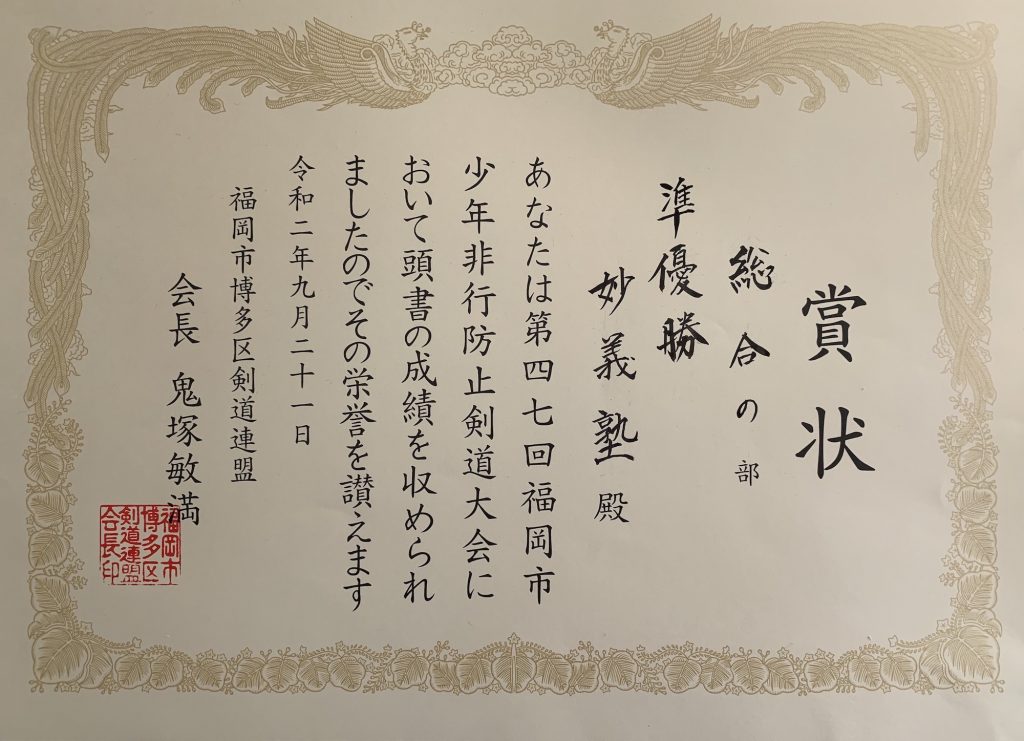 賞状
総合の部
準優勝
妙義塾殿
あなたは第四七回福岡市
少年非行防止剣道大会に
おいて頭書の成績を収められ
ましたのでその栄誉を讃えます
令和二年九月二十一日
福岡市博多区剣道連盟
会長 鬼塚敏満
福岡市
博多区
剣道連盟
会長印